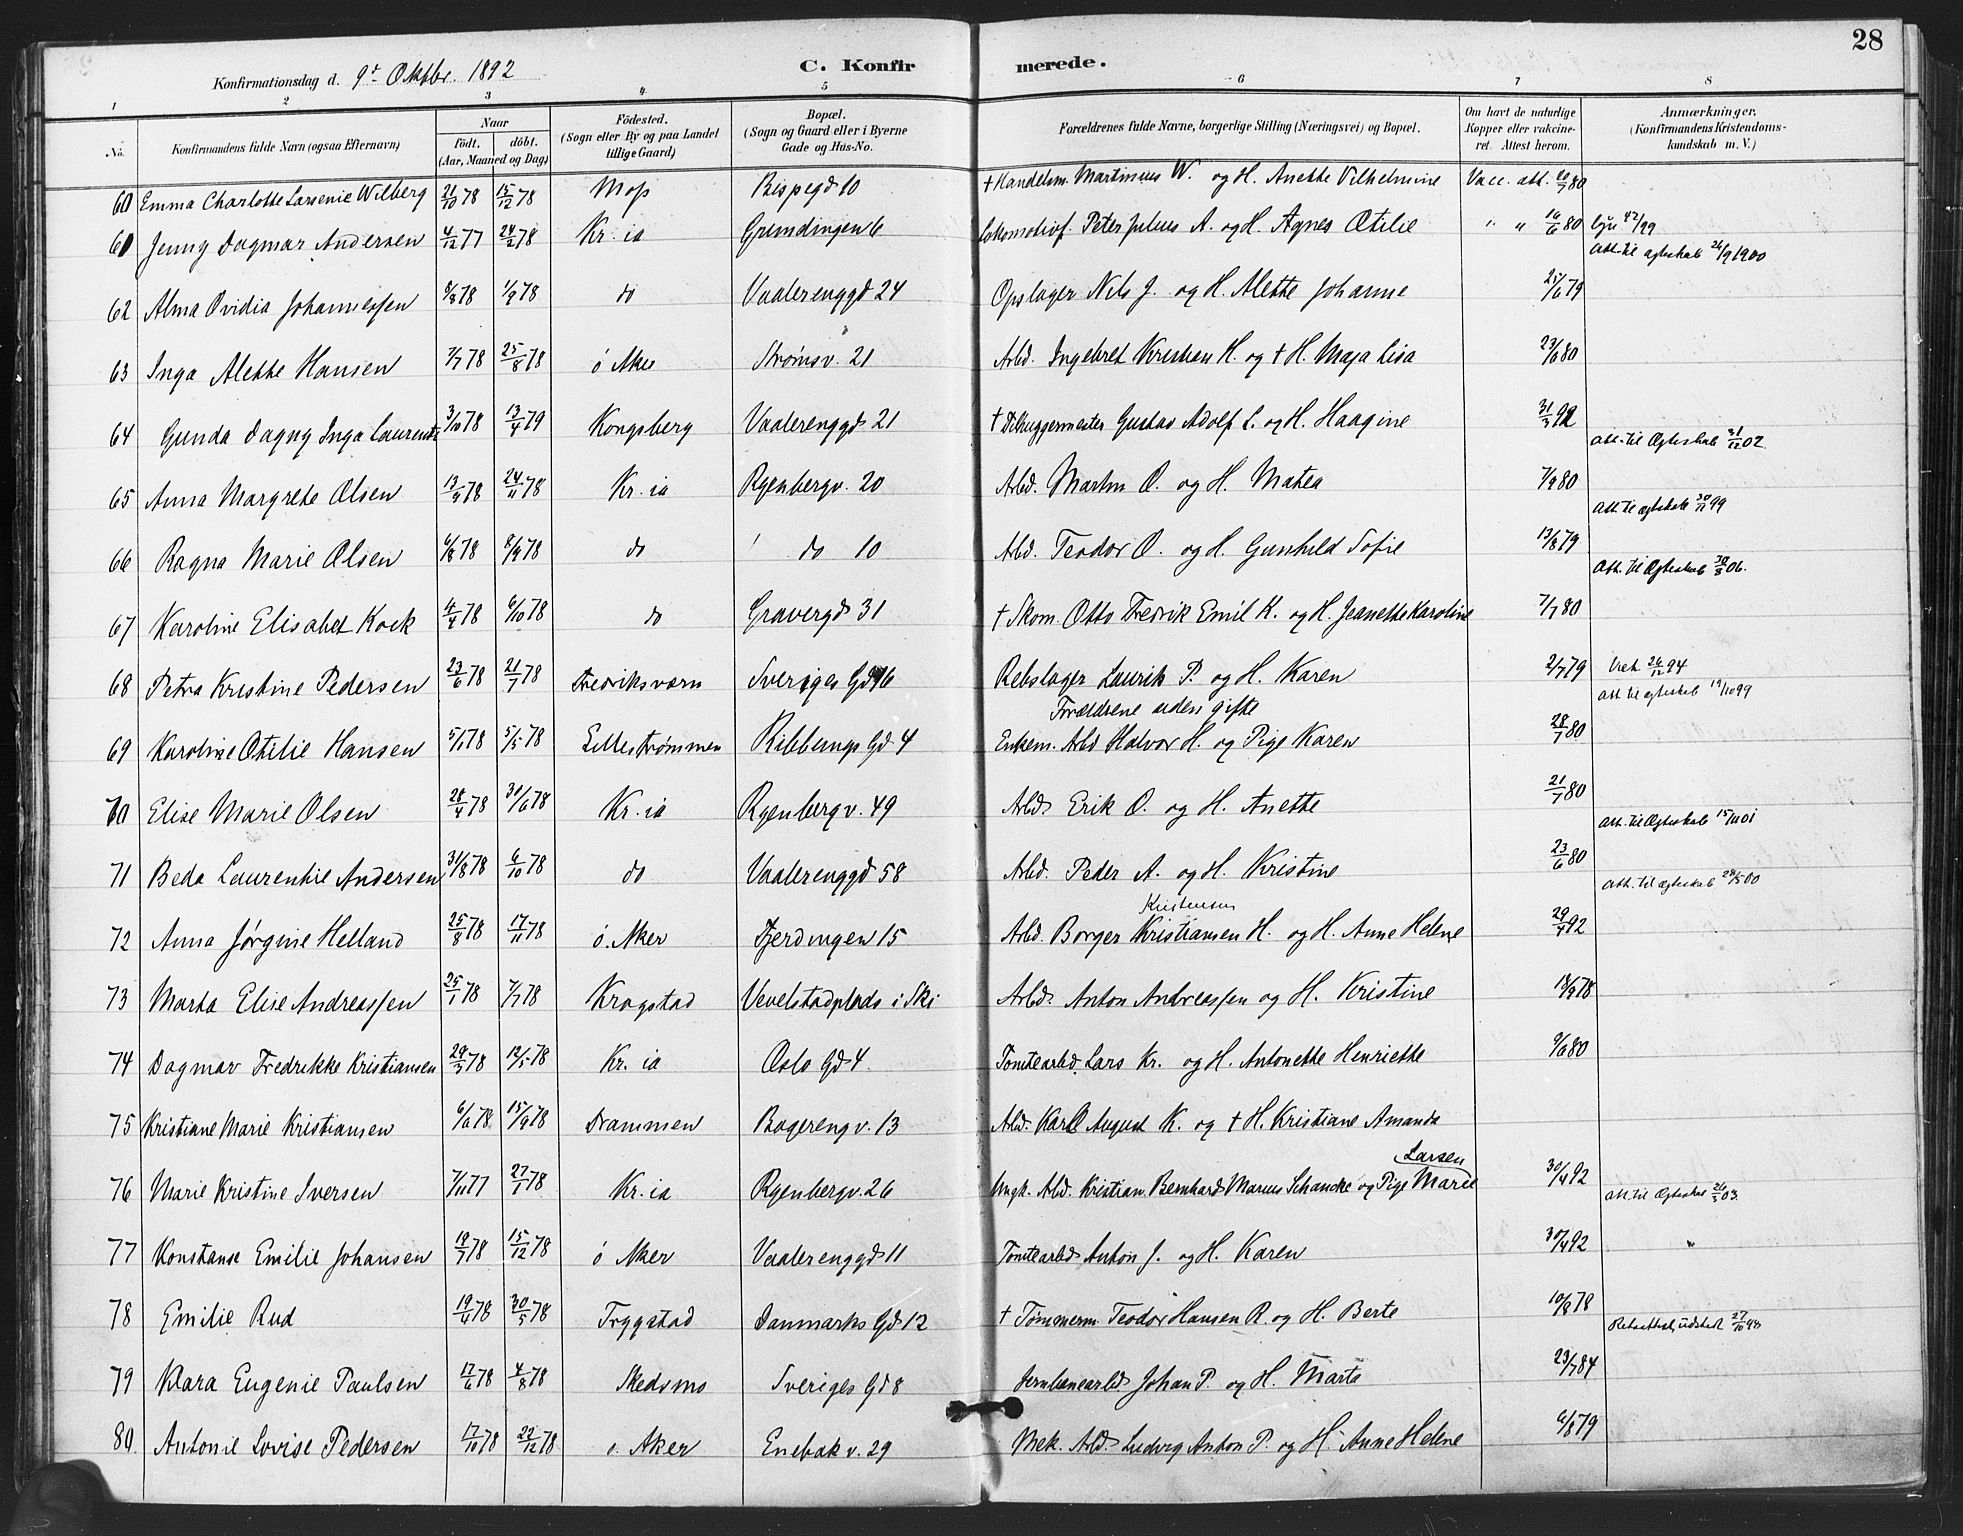 28
Konfirmationsdag d. 9de Oktbr. 1892 C. Konfirmerede.
1 2 3 4 5 6 7 8
No. Konfirmandens fulde Navn (ogsaa Efternavn) Naar födt. döbt. (Aar, Maaned og Dag) Födested. (Sogn eller By og paa Landet tillige Gaard) Bopæl. (Sogn og Gaard eller i Byerne Gade og Hus-No. Forældrenes fulde Navne, borgerlige Stilling (Næringsvei) og Bopæl. Om havt de naturlige Kopper eller vaccineret. Attest herom. Anmærkninger. (Konfirmandens Kristendomskundskab m. V.)
60 Emma Charlotte Larsenie Wilberg 21/10 78 15/12 78 Moss Bispegd 10 † Handelsm. Martinius W. og H. Anette Vilhelmine Vacc. att. 20/7 80
61 Jenny Dagmar Andersen 4/12 77 24/2 78 Kr.ia Grundingen 6 Lokomotivf. Peter Julius A. og H. Agnes Otilie " " 16/6 80
Att. til ægteskab 24/9 1900
62 Alma Ovidia Johannessen 8/3 78 1/9 78 do Vaalerenggd 24 Opslager Nils J. og H. Alette Johanne 25/6 79
63 Inga Alette Hansen 7/7 78 25/8 78 ö Aker Strömsv. 21 Arbd. Ingebret Kristian H. og † H. Maja Lisa 23/6 80
64 Gunda Dagny Inga Laurentz 3/10 78 13/4 79 Kongsberg Vaalerenggd 21 † Gustav Adolf L. og H. Haagine 31/3 92
Att. til Ægteskab 31/12 02
65 Anna Margrete Olsen 13/9 78 24/11 78 Kr.ia Ryenbergv. 20 Arbd. Martin O. og H. Matea 7/9 80
Att. til ægteskab 30/11 99
66 Ragna Marie Olsen 6/8 78 8/9 78 do do 10 Arbd. Teodor O. og H. Gunhild Sofie 13/8 79
Att. til Ægteskab 30/3 06.
67 Karoline Elisabet Kock 4/4 78 6/10 78 do Gravergd 31 † Skom. Otto Fredrik Emil K. og H. Jeanette Karoline 7/7 80
68 Petra Kristine Pedersen 23/6 78 21/7 78 Fredriksværn Sveriges Gd 16 Rebslager Laurik P. og H. Karen 2/7 79
Att. til ægteskab 19/10 99
Forældrene siden gifte
69 Karoline Otilie Hansen 5/1 78 5/5 78 Lillestrømmen Ribbungs Gd 4 Enkem. Arbd Halvor H. og Pige Karen 28/7 80
70 Elise Marie Olsen 28/4 78 30/6 78 Kr.ia Ryenbergv. 49 Arbd. Erik O. og H. Anette 21/7 80
Att. til Ægteskab 15/11 01
71 Beda Laurentie Andersen 31/8 78 6/10 78 do Vaalerenggd 58 Arbd. Peder A. og H. Kristine 23/6 80
Att. til ægteskab 28/5 00
Kristensen
72 Anna Jørgine Helland 25/8 78 17/11 78 ö. Aker Fjerdingen 15 Arbd. Borger Kristiansen H. og H. Anne Helene 29/4 92
73 Marta Elise Andreassen 25/1 78 7/7 78 Kragstad Vevelstadplads i Ski Arbd. Anton Andreassen og H. Kristine 18/9 78
74 Dagmar Fredrikke Kristiansen 29/3 78 12/5 78 Kr.ia Oslo Gd 4. Tomtearbd. Lars Kr. og H. Antonette Henriette 9/6 80
75 Kristiane Marie Kristiansen 6/6 78 15/9 78 Drammen Bogerengv. 13 Arbd. Karl August K. og † H. Kristiane Amanda
Larsen
76 Marie Kristine Iversen 7/11 77 27/1 78 Kr.ia Ryenbergv. 26 Ungk. Arbd. Kristian Bernhard Marius Schancke og Pige Marie 30/4 92
Att. til Ægteskab 26/3 03.
77 Konstanse Emilie Johansen 18/7 78 15/12 78 ö Aker Vaalerenggd 11 Tomtearbd Anton J. og H. Karen 30/4 92 "
78 Emilie Rud 19/4 78 30/5 78 Trygstad Danmarks Gd 12 † Tömmerm. Teodor Hansen R. og H. Berte 10/8 78
79 Klara Eugenie Paulsen 17/6 78 4/8 78 Skedsmo Sveriges Gd 8 Jernbanearbd Johan P. og H. Marta 23/7 84
80 Antonie Lovise Pedersen 17/10 78 22/12 78 ö. Aker Enebakv. 29 Mek. Arbd. Ludvig Anton P. og H. Anne Helene 6/8 79